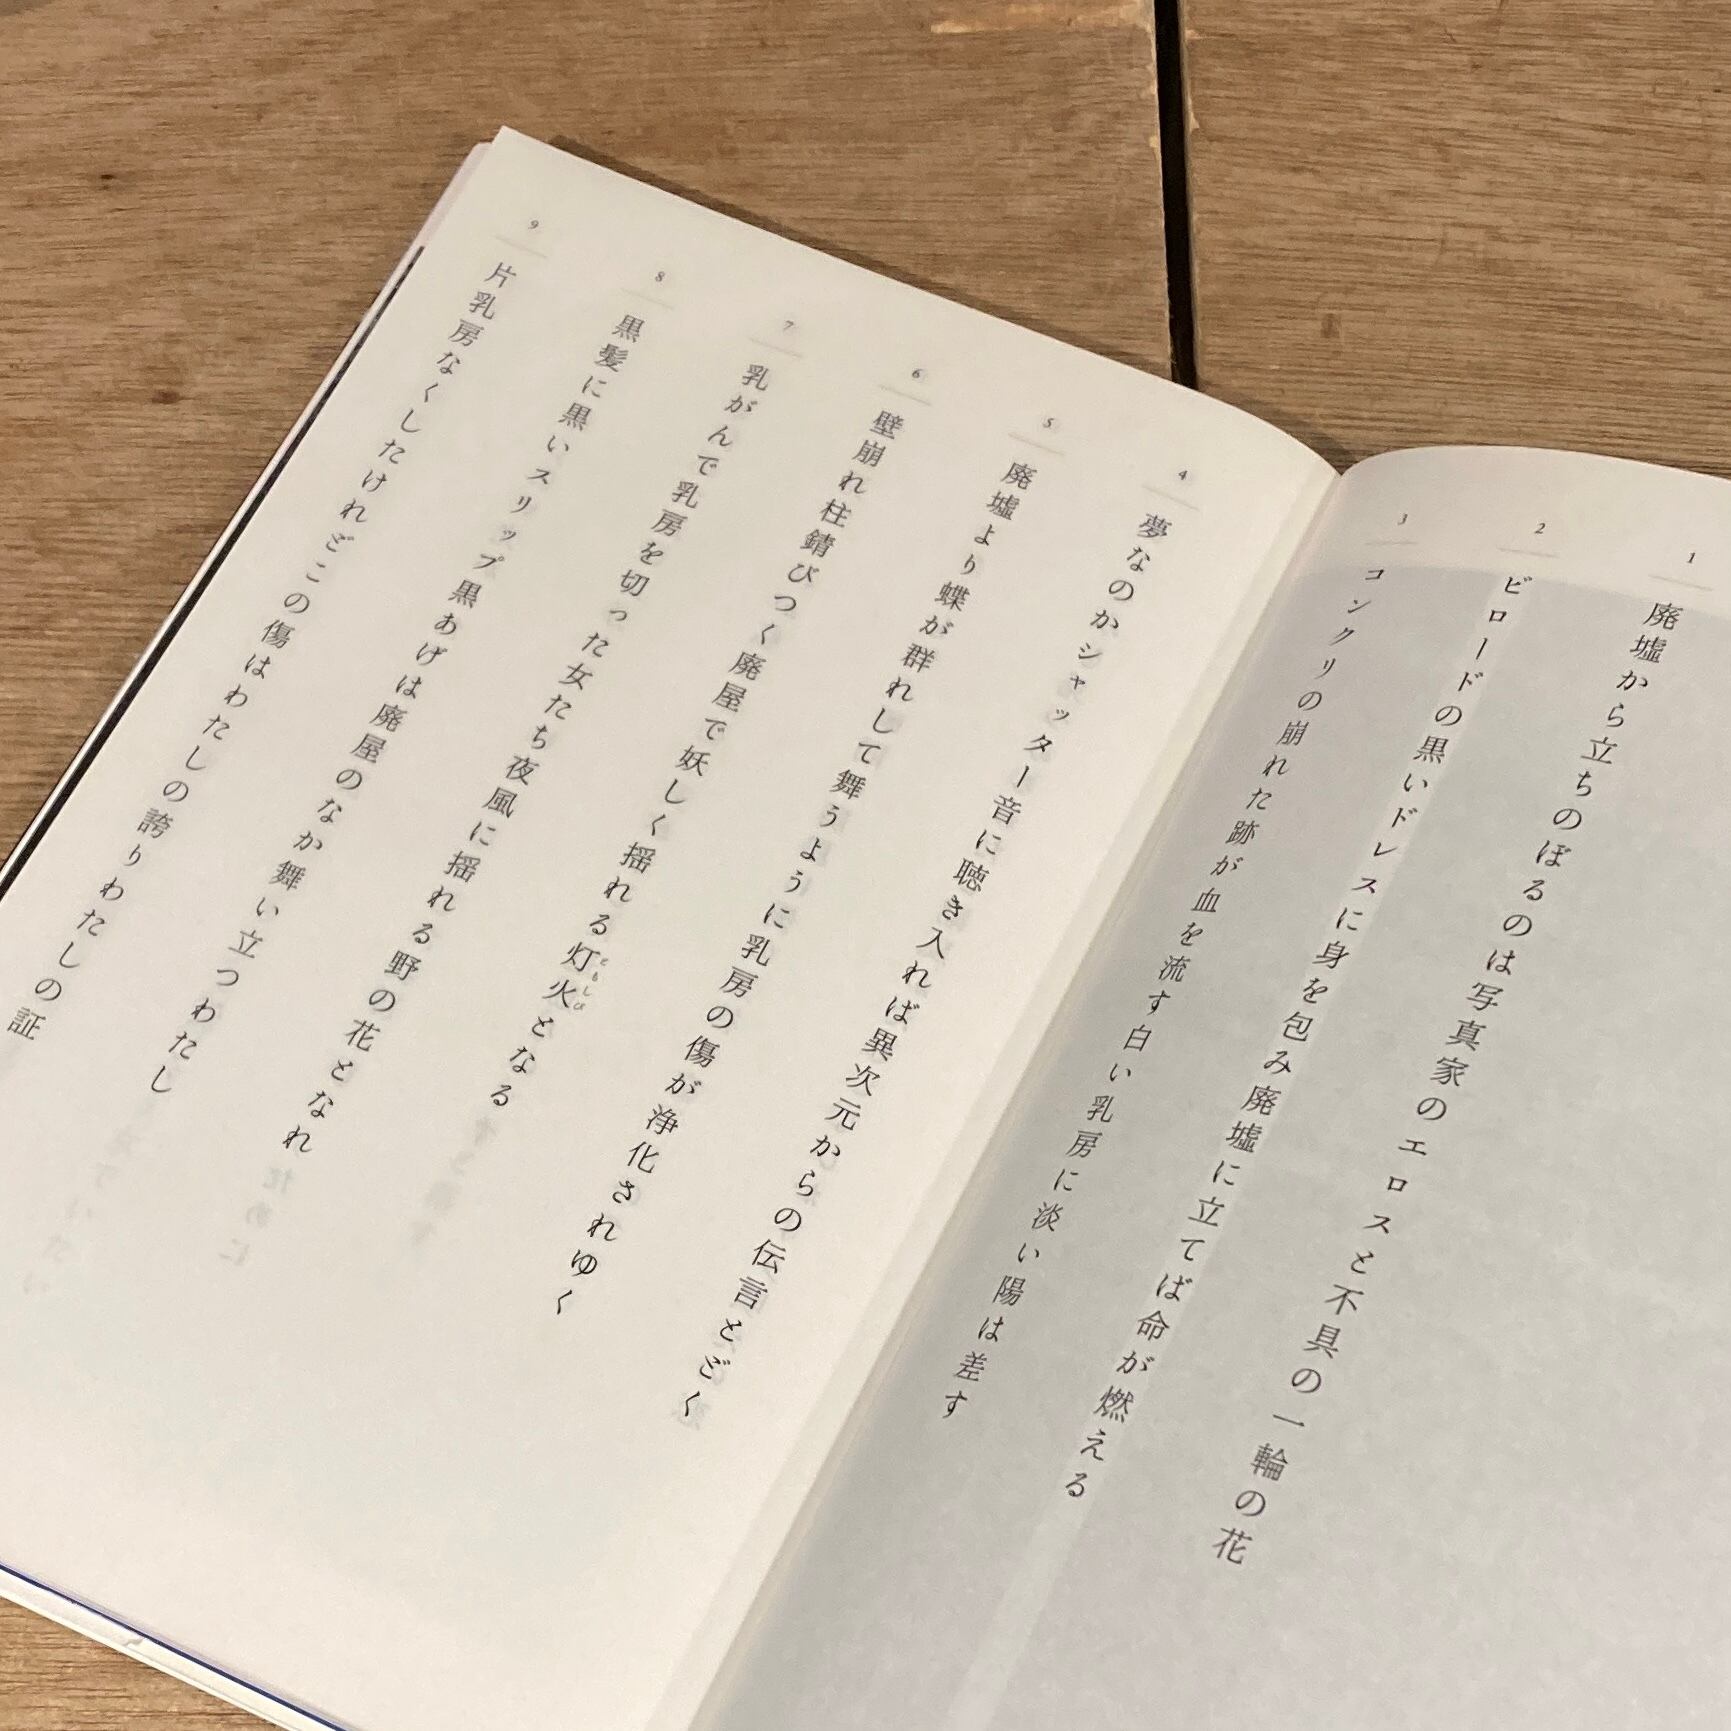 1
廃墟から立ちのぼるのは写真家のエロスと不具の一輪の花
2
ビロードの黒いドレスに身を包み廃墟に立てば命が燃える
3
コンクリの崩れた跡が血を流す白い乳房に淡い陽は差す
4
夢なのかシャッター音に聴き入れば異次元からの伝言とどく
5
廃墟より蝶が群れして舞うように乳房の傷が浄化されゆく
6
壁崩れ柱錆びつく廃屋で妖しく揺れる灯火となる
ともしび
7
乳がんで乳房を切った女たち夜風に揺れる野の花となれ
8
黒髪に黒いスリップ黒あげは廃屋のなか舞い立つわたし
9
片乳房なくしたけれどこの傷はわたしの誇りわたしの証